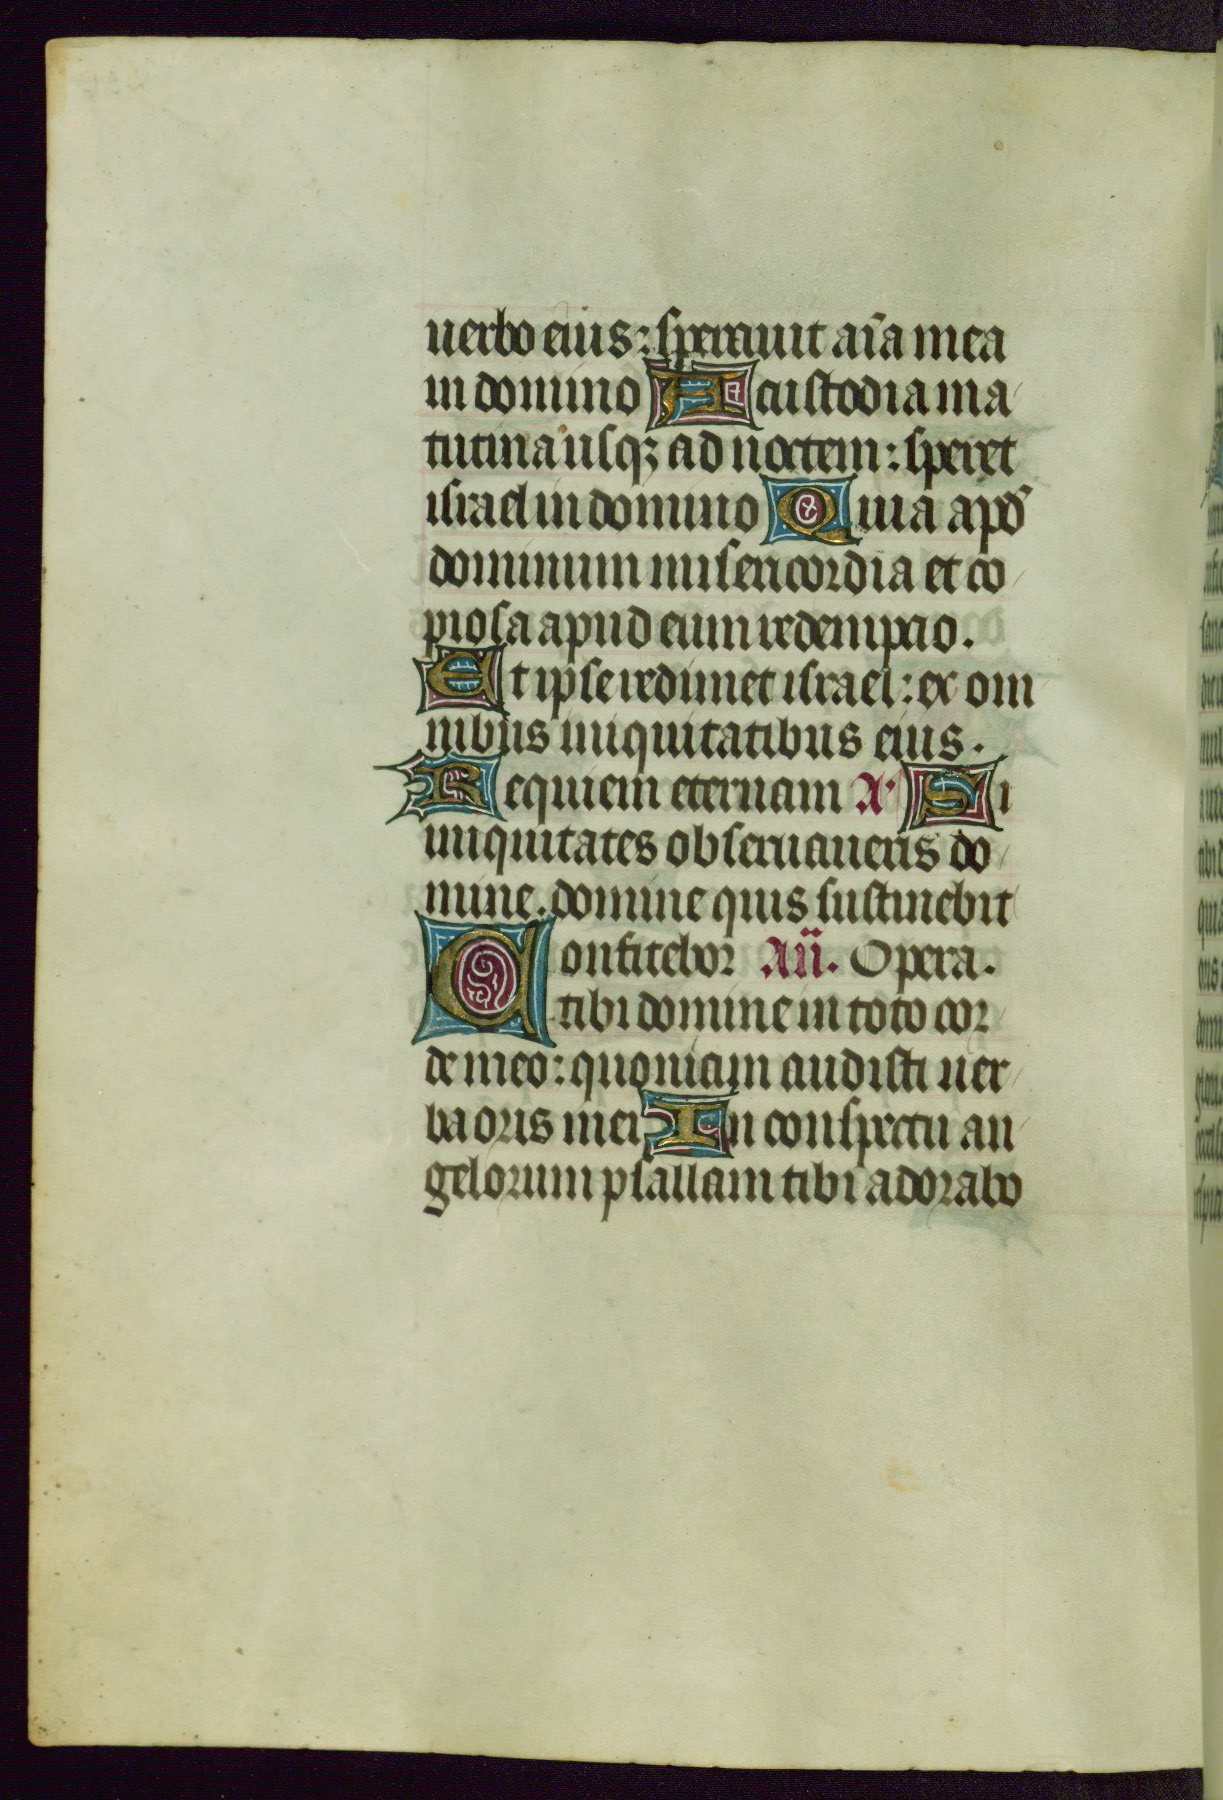 uerbo eius: sperauit aīa mea
in domino A custodia ma
tutina usqꝫ ad noctem: speret
israel in domino Quia apd̄
dominum misericordia et co
piosa apud eum redempcio.
Et ipse redimet israel: ex om
nibus iniquitatibus eius.
Requiem eternam A' Si
iniquitates obseruaueris do
mine. domine quis sustinebit
Confitebor Añ. Opera.
tibi domine in toto cor
de meo: quoniam audisti uer
ba oris mei In conspectu an
gelorum psallam tibi adorabo